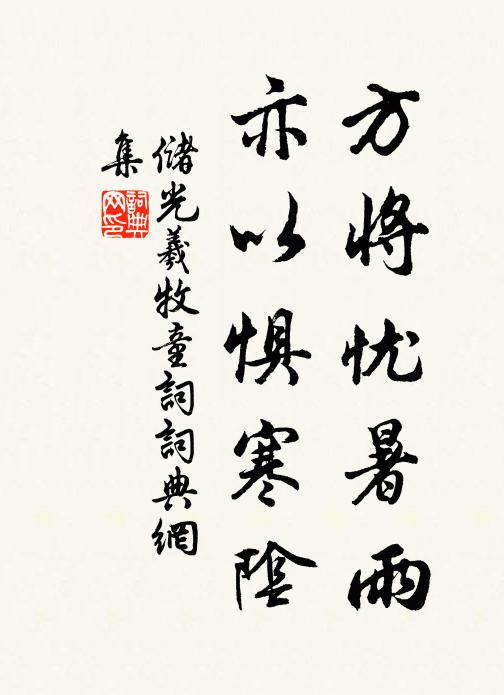 方将忧暑雨
亦以惧寒陰
儲光羲牧童詞詞典網
集
詞典網印